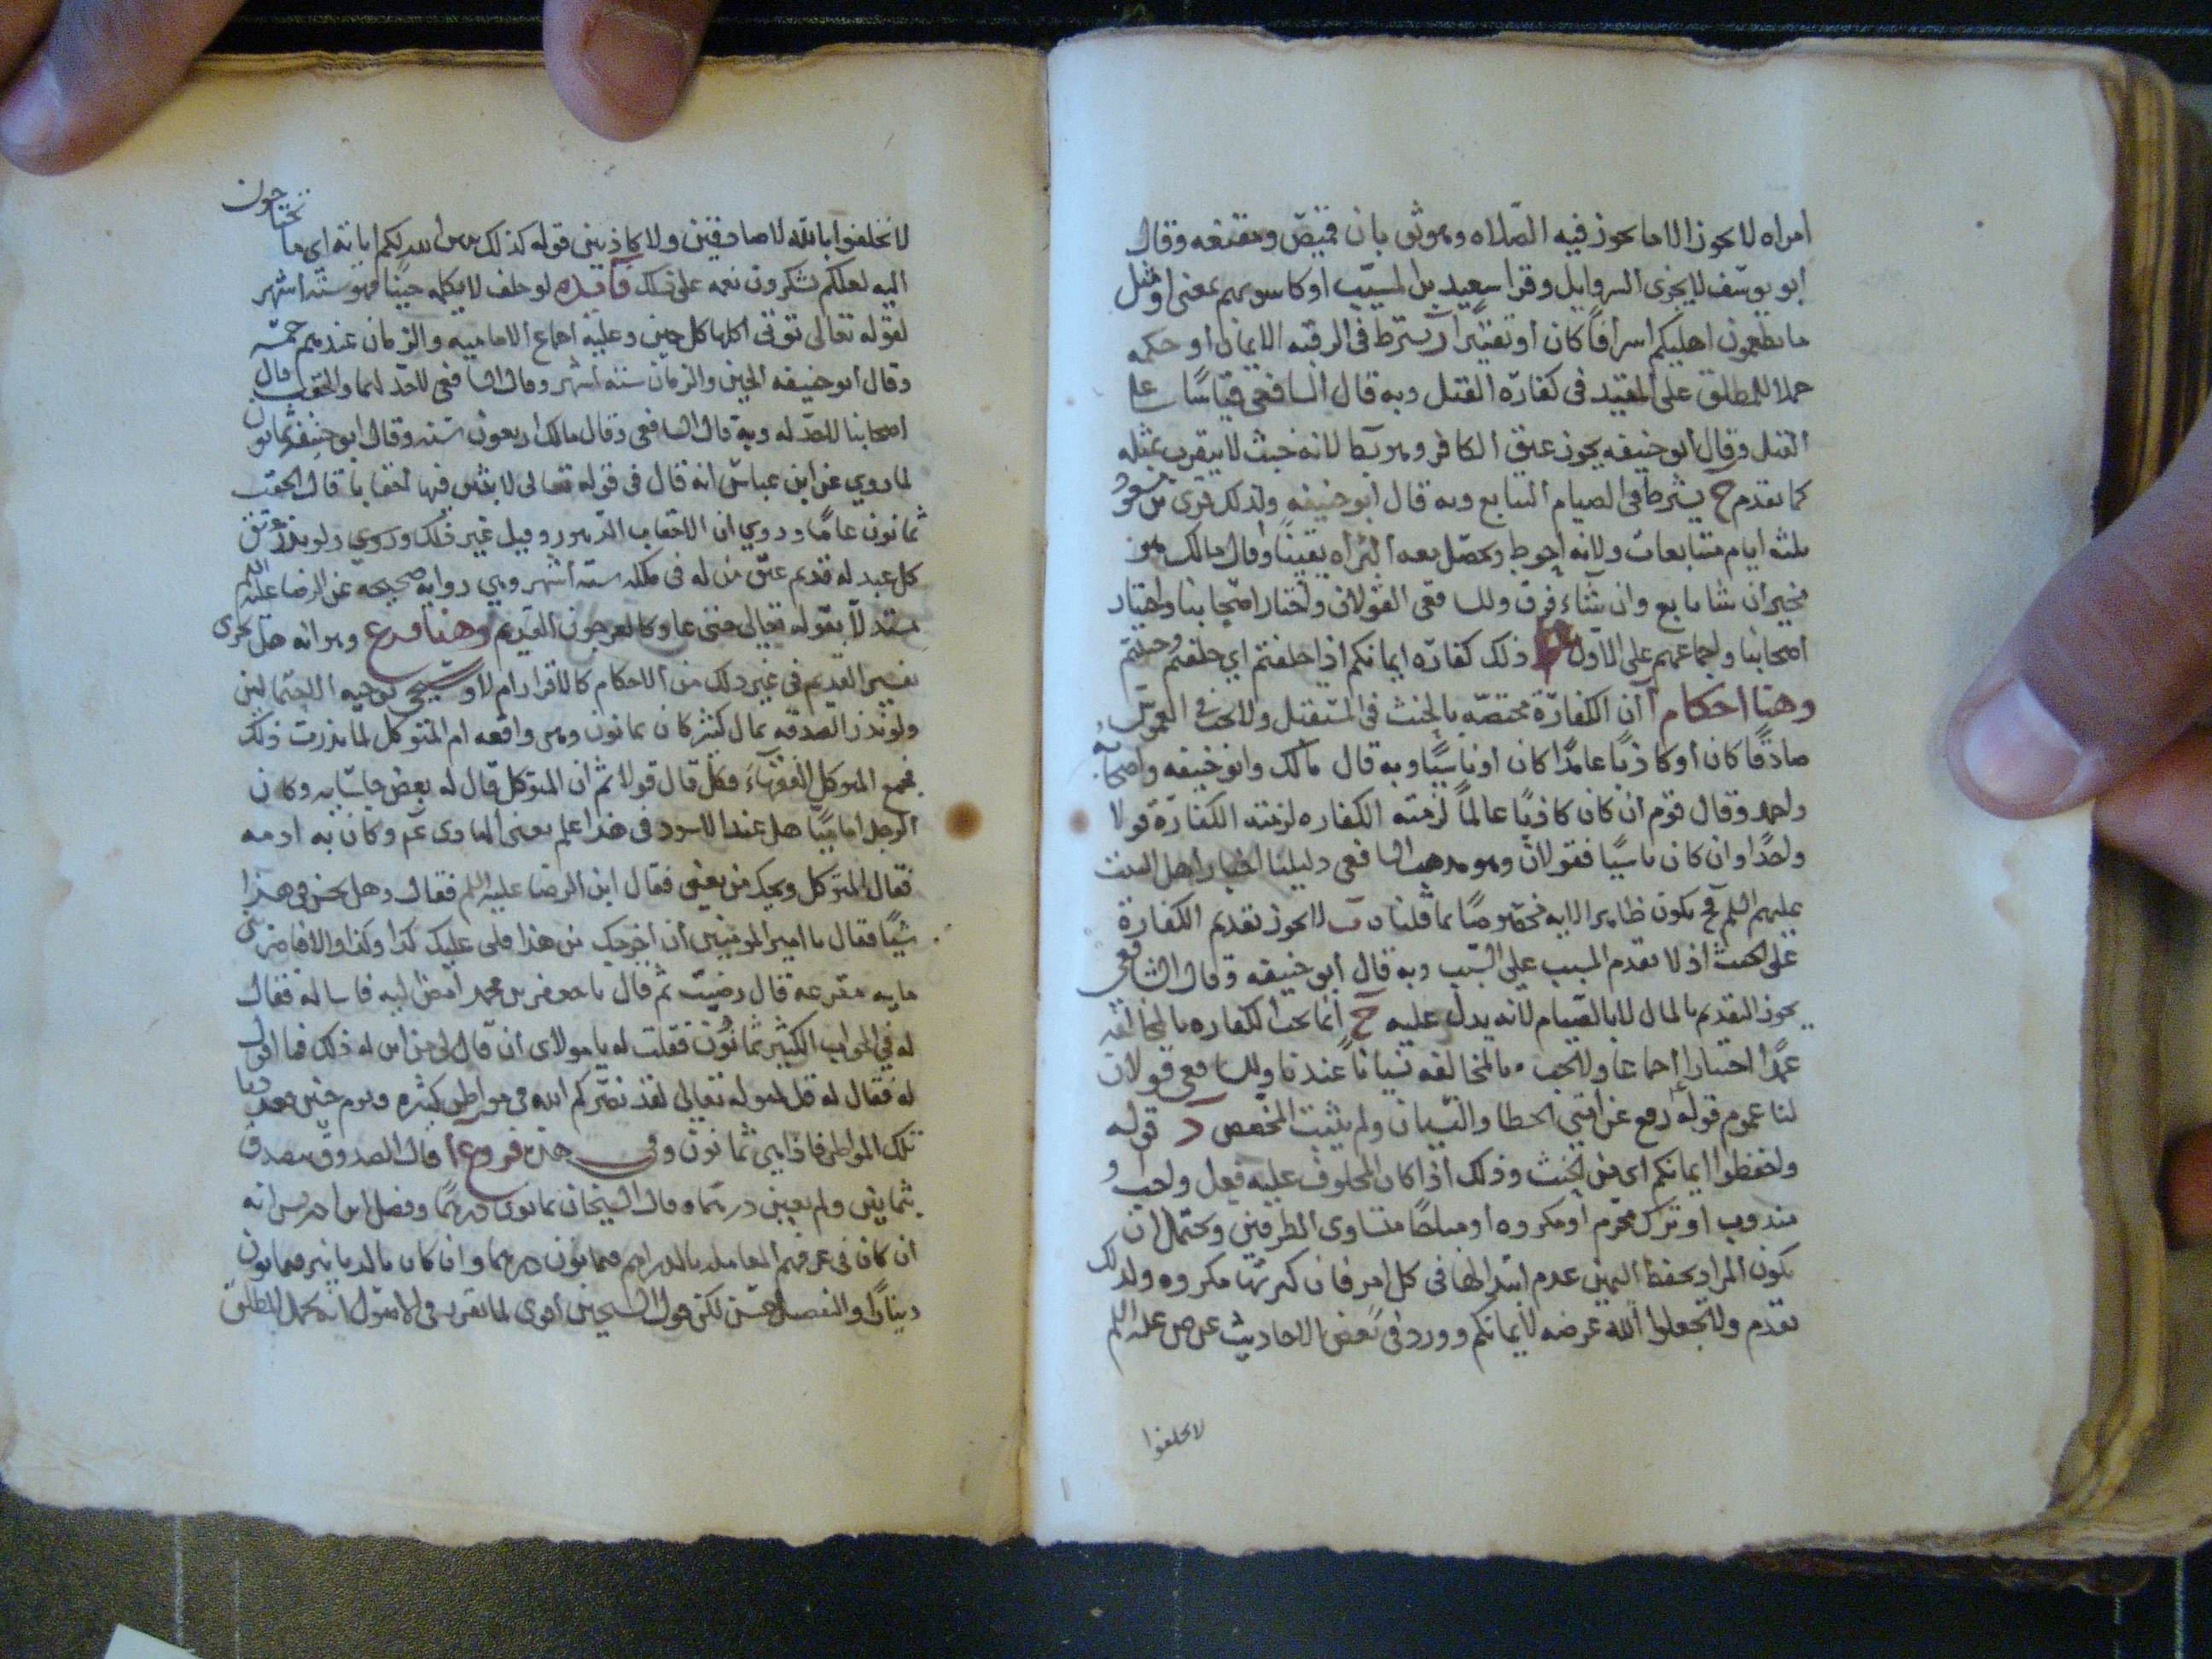 امراه لا يجوز الا ما يجوز فيه الصلاه وهو ثوبان قميص ومقنعه وقال
ابو يوسف لا يجزى السراويل وقرا سعيد بن المسيب او كاسوتهم بمعنى او مثل
ما تطعمون اهليكم اسرافا كان أو تقتيرا آ يشترط فى الرقبه الايمان أو حكمه
حملا للمطلق على المقيد فى كفارة القتل وبه قال الشافعى قياسا على
القتل وقال أبو حنيفه يجوز عتق الكافر وهو لانه خبث لا يتقرب بمثله
كما تقدم ح يشترط فى الصيام التتابع وبه قال أبو حنيفه ولذلك قرى بن مسعود
ثلثه ايام متتابعات ولانه احوط ويحصل معه البراه يقينا وقال مالك هو
مخير ان شا تابع وان شاء فرق وللشافعى القولان واختار اصحابنا واختيار
اصحابنا واجماعهم على الاول ذلك كفارة ايمانكم اذا حلفتم اي حلفتم وحنثتم
وهنا احكام آ ان الكفارة مختصه بالحنث فى المستقبل ولا يجب فى الغموس
صادقا كان أو كاذبا عامدا كان أو ناسيا وبه قال مالك وابو حنيفه واصحابه
واحمد وقال قوم ان كان كاذبا عالما لزمته الكفاره لزمته الكفارة قولا
واحدا وان كان ناسيا فقولان وهو مذهب الشافعى دليلنا اخبار اهل البيت
عليهم السلم فح يكون ظاهر الايه مخصوصا بما قلناه ب لا يجوز تقديم الكفارة
على الحنث اذ لا تقدم المسبب على السبب وبه قال أبو حنيفه وقال الشافعى
يجوز التقديم بالمال لا بالصيام لانه بدل عليه ح انما يجب الكفاره بالمخالفه
عمدا اختيارا اجماعا ولا يجب بالمخالفه نسيانا عندنا وللشافعى قولان
لنا عموم قوله رفع عن امتى الخطا والنسيان ولم يثبت المخصص د قوله
واحفظوا ايمانكم اى من الحنث وذلك اذا كان المحلوف عليه فعل واجب او
مندوب او ترك محرم او مكروه او مباحا متساوى الطرفين ويحتمل ان
يكون المراد بحفظ اليمين عدم ابتذالها فى كل امر فان كثرتها مكروه ولذلك
تقدم ولا تجعلوا الله عرضه لايمانكم وورد فى بعض الاحاديث عن ص عليه السلم
لا تحلفوا
لا تحلفوا بالله لا صادقين ولا كاذبين قوله كذلك يبين الله لكم اياته اى ما تحتاجون
اليه لعلكم تشكرون نعمه على ذلك فائده لو حلف لا يكلمه حينا فهو سته اشهر
لقوله تعالى توتى اكلها كل حين وعليه اجماع الاماميه والزمان عندهم خمسه
وقال أبو حنيفه الحين والزمان سته اشهر وقال الشافعى لا حد لهما والحقب قال
اصحابنا لا حد له وبه قال الشافعى وقال مالك اربعون سنه وقال ابو حنيفه ثمانون
لما روي عن ابن عباس انه قال فى قوله تعالى لابثين فيها احقابا قال الحقب
ثمانون عاما وروي ان الاحقاب الدهور وقيل غير ذلك وروي ولو نذر عتق
كل عبد له قديم عتق من له فى ملكه سته اشهر وهي روايه صحيحه عن الرضا عليه السلم
مستدلا بقوله تعالى حتى عاد كالعرجون القديم وهنا فرع وهو انه هل يجرى
تفسير القديم فى غير ذلك من الاحكام كالاقرار ام لا وسيجى توجيه الاحتمالين
ولو نذر الصدقه بمال كثير كان ثمانون وهى واقعه ام المتوكل لما نذرت ذلك
فجمع المتوكل الفقهاء فكل قال قولا ثم ان المتوكل قال له بعض جلسائه وكان
الرجل اماميا هل عند الاسود فى هذا علم يعنى الهادى عم وكان به ادمه
فقال المتوكل ويحك من يعنى فقال ابن الرضا عليه السلم فقال وهل يحسن فى هذا
شيا فقال يا امير المومنين ان اخرجك من هذا فلى عليك كذا وكذا والا فاضربنى
مايه مقرعه قال رضيت ثم قال يا جعفر بن محمد امض اليه فاساله فقال
له فى الجواب الكثير ثمانون فقلت له يا مولاى ان قال لى من اين له ذلك فما اقول
له فقال له قل لقوله تعالى لقد نصركم الله فى مواطن كثيره ويوم حنين فعددنا
تلك المواطن فاذا هى ثمانون وفى هذه فروع آ قال الصدوق يتصدق
بثمانين ولم يعين درهما وقال الشيخان ثمانون درهما وفصل ابن ادريس انه
ان كان فى عرفهم المعامله بالدراهم فثمانون درهما وان كان بالدينار فثمانون
دينارا والتفصيل حسن لكن قول الشيخين اقوى لما تقرر فى الاصول انه يحمل المطلق